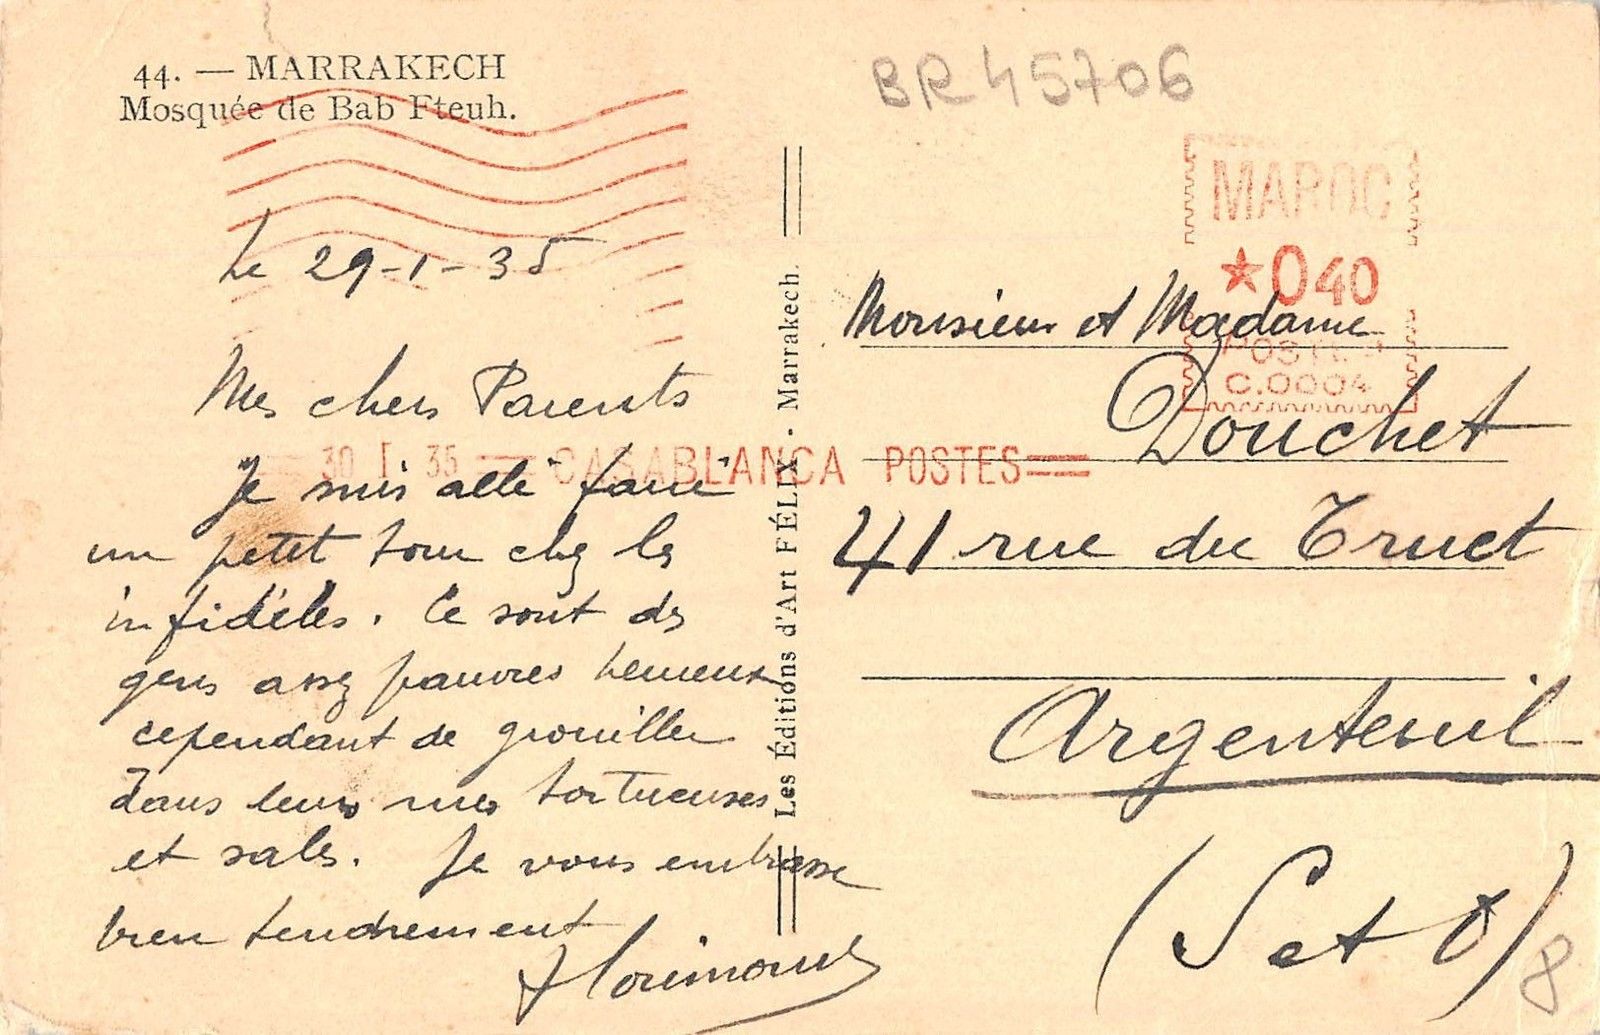 44. — MARRAKECH
Mosquée de Bab Fteuh.
BR 45706
MAROC
★040
POSTES
C.0004
30 I 35 CASABLANCA POSTES
Le 29-1-35
Mes chers Parents
Je suis allé faire
un petit tour chez les
infidèles. Ce sont des
gens assez pauvres heureux
cependant de grouiller
dans leurs rues tortueuses
et sales. Je vous embrasse
bien tendrement
Les Éditions d'Art FÉLIX - Marrakech.
Monsieur et Madame
Douchet
41 rue du Truct
Argenteuil
(S et O)
8